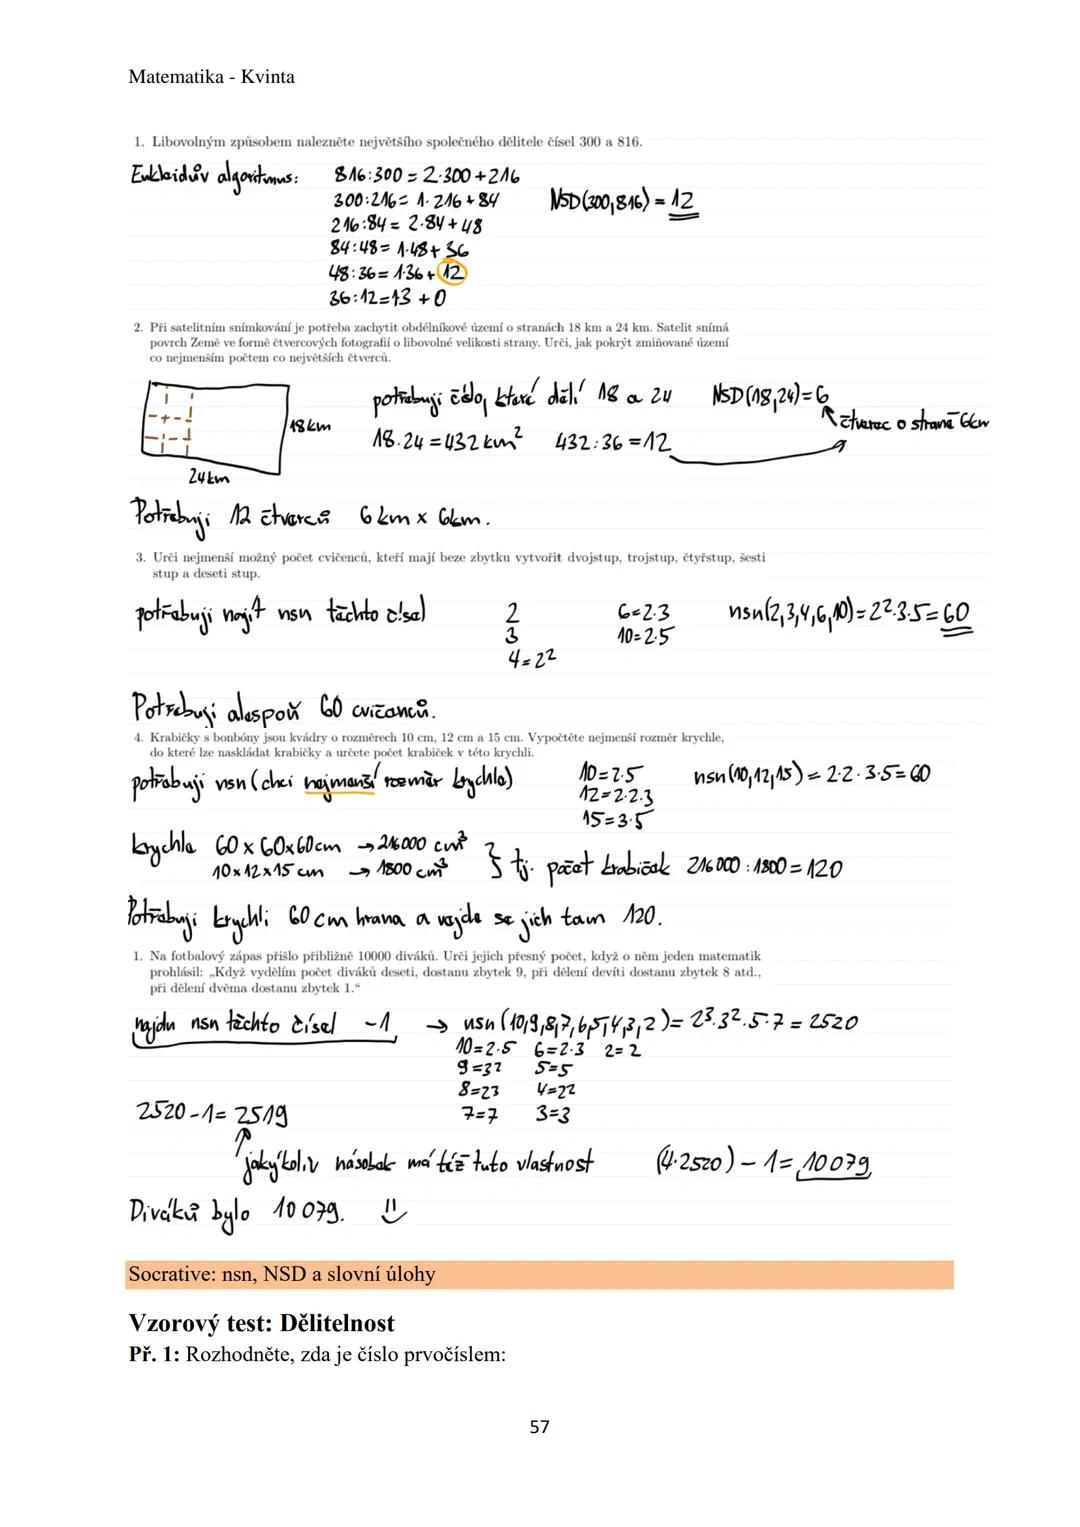 Matematika - Kvinta
1. Libovolným způsobem nalezněte největšího společného dělitele čísel 300 a 816.
Eukleidův algoritmus: 816:300 = 2·300+216
300:216= 1·216+84 NSD(300,816) = 12
216:84= 2·84+48
84:48= 1·48+36
48:36= 1·36+12
36:12=13 +0
2. Při satelitním snímkování je potřeba zachytit obdélníkové území o stranách 18 km a 24 km. Satelit snímá
povrch Země ve formě čtvercových fotografií o libovolné velikosti strany. Urči, jak pokrýt zmiňované území
co nejmenším počtem co největších čtverců.
potřebuji číslo, které dělí 18 a 24 NSD(18,24)=6
18km čtverec o straně 6km
18·24=432 km² 432:36=12
24km
Potřebuji 12 čtverců 6 km x 6km.
3. Urči nejmenší možný počet cvičenců, kteří mají beze zbytku vytvořit dvojstup, trojstup, čtyřstup, šesti
stup a deseti stup.
potřebuji najít nsn těchto čísel 2 6=2·3 nsn(2,3,4,6,10)=2²·3·5=60
3 10=2·5
4=2²
Potřebuji alespoň 60 cvičenců.
4. Krabičky s bonbóny jsou kvádry o rozměrech 10 cm, 12 cm a 15 cm. Vypočtěte nejmenší rozměr krychle,
do které lze naskládat krabičky a určete počet krabiček v této krychli.
potřebuji nsn (chci nejmenší rozměr krychle) 10=2·5 nsn(10,12,15) = 2·2·3·5=60
12=2·2·3
15=3·5
krychle 60 x 60x60cm → 216000 cm³
10x12x15 cm → 1800 cm³ } tj. počet krabiček 216 000 : 1800 = 120
Potřebuji krychli 60 cm hrana a vejde se jich tam 120.
1. Na fotbalový zápas přišlo přibližně 10000 diváků. Urči jejich přesný počet, když o něm jeden matematik
prohlásil: „Když vydělím počet diváků deseti, dostanu zbytek 9, při dělení devíti dostanu zbytek 8 atd.,
při dělení dvěma dostanu zbytek 1.“
najdu nsn těchto čísel -1 → nsn (10,9,8,7,6,5,4,3,2)= 2³·3²·5·7 = 2520
10=2·5 6=2·3 2=2
9=32 5=5
8=23 4=22
2520-1= 2519 7=7 3=3
jakýkoliv násobek má též tuto vlastnost (4·2520) - 1= 10 079
Diváků bylo 10 079.
Socrative: nsn, NSD a slovní úlohy
Vzorový test: Dělitelnost
Př. 1: Rozhodněte, zda je číslo prvočíslem:
57